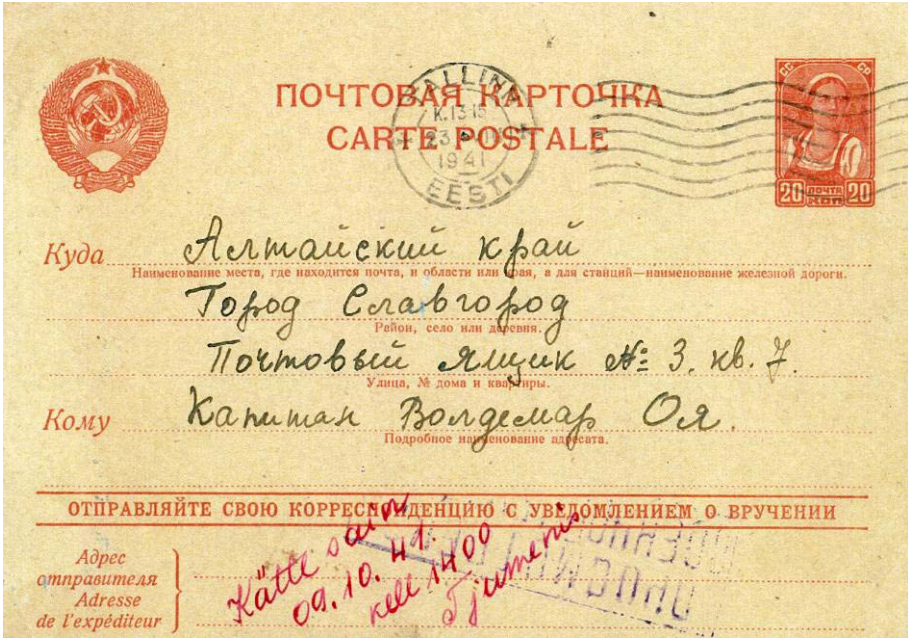 ПОЧТОВАЯ КАРТОЧКА
CARTE POSTALE
TALLINN
K.13-15
23
1941
EESTI
СС СР
20 ПОЧТА 20
КОП
Куда Алтайский край
Наименование места, где находится почта, и области или края, а для станций—наименование железной дороги.
Город Славгород
Район, село или деревня.
Почтовый ящик № 3. кв. 7.
Улица, № дома и квартиры.
Кому Капитан Волдемар Оя.
Подробное наименование адресата.
ОТПРАВЛЯЙТЕ СВОЮ КОРРЕСПОНДЕНЦИЮ С УВЕДОМЛЕНИЕМ О ВРУЧЕНИИ
Адрес
отправителя
Adresse
de l'expéditeur
Kätte sain
09.10.41.
kell 1400
Tjumenis